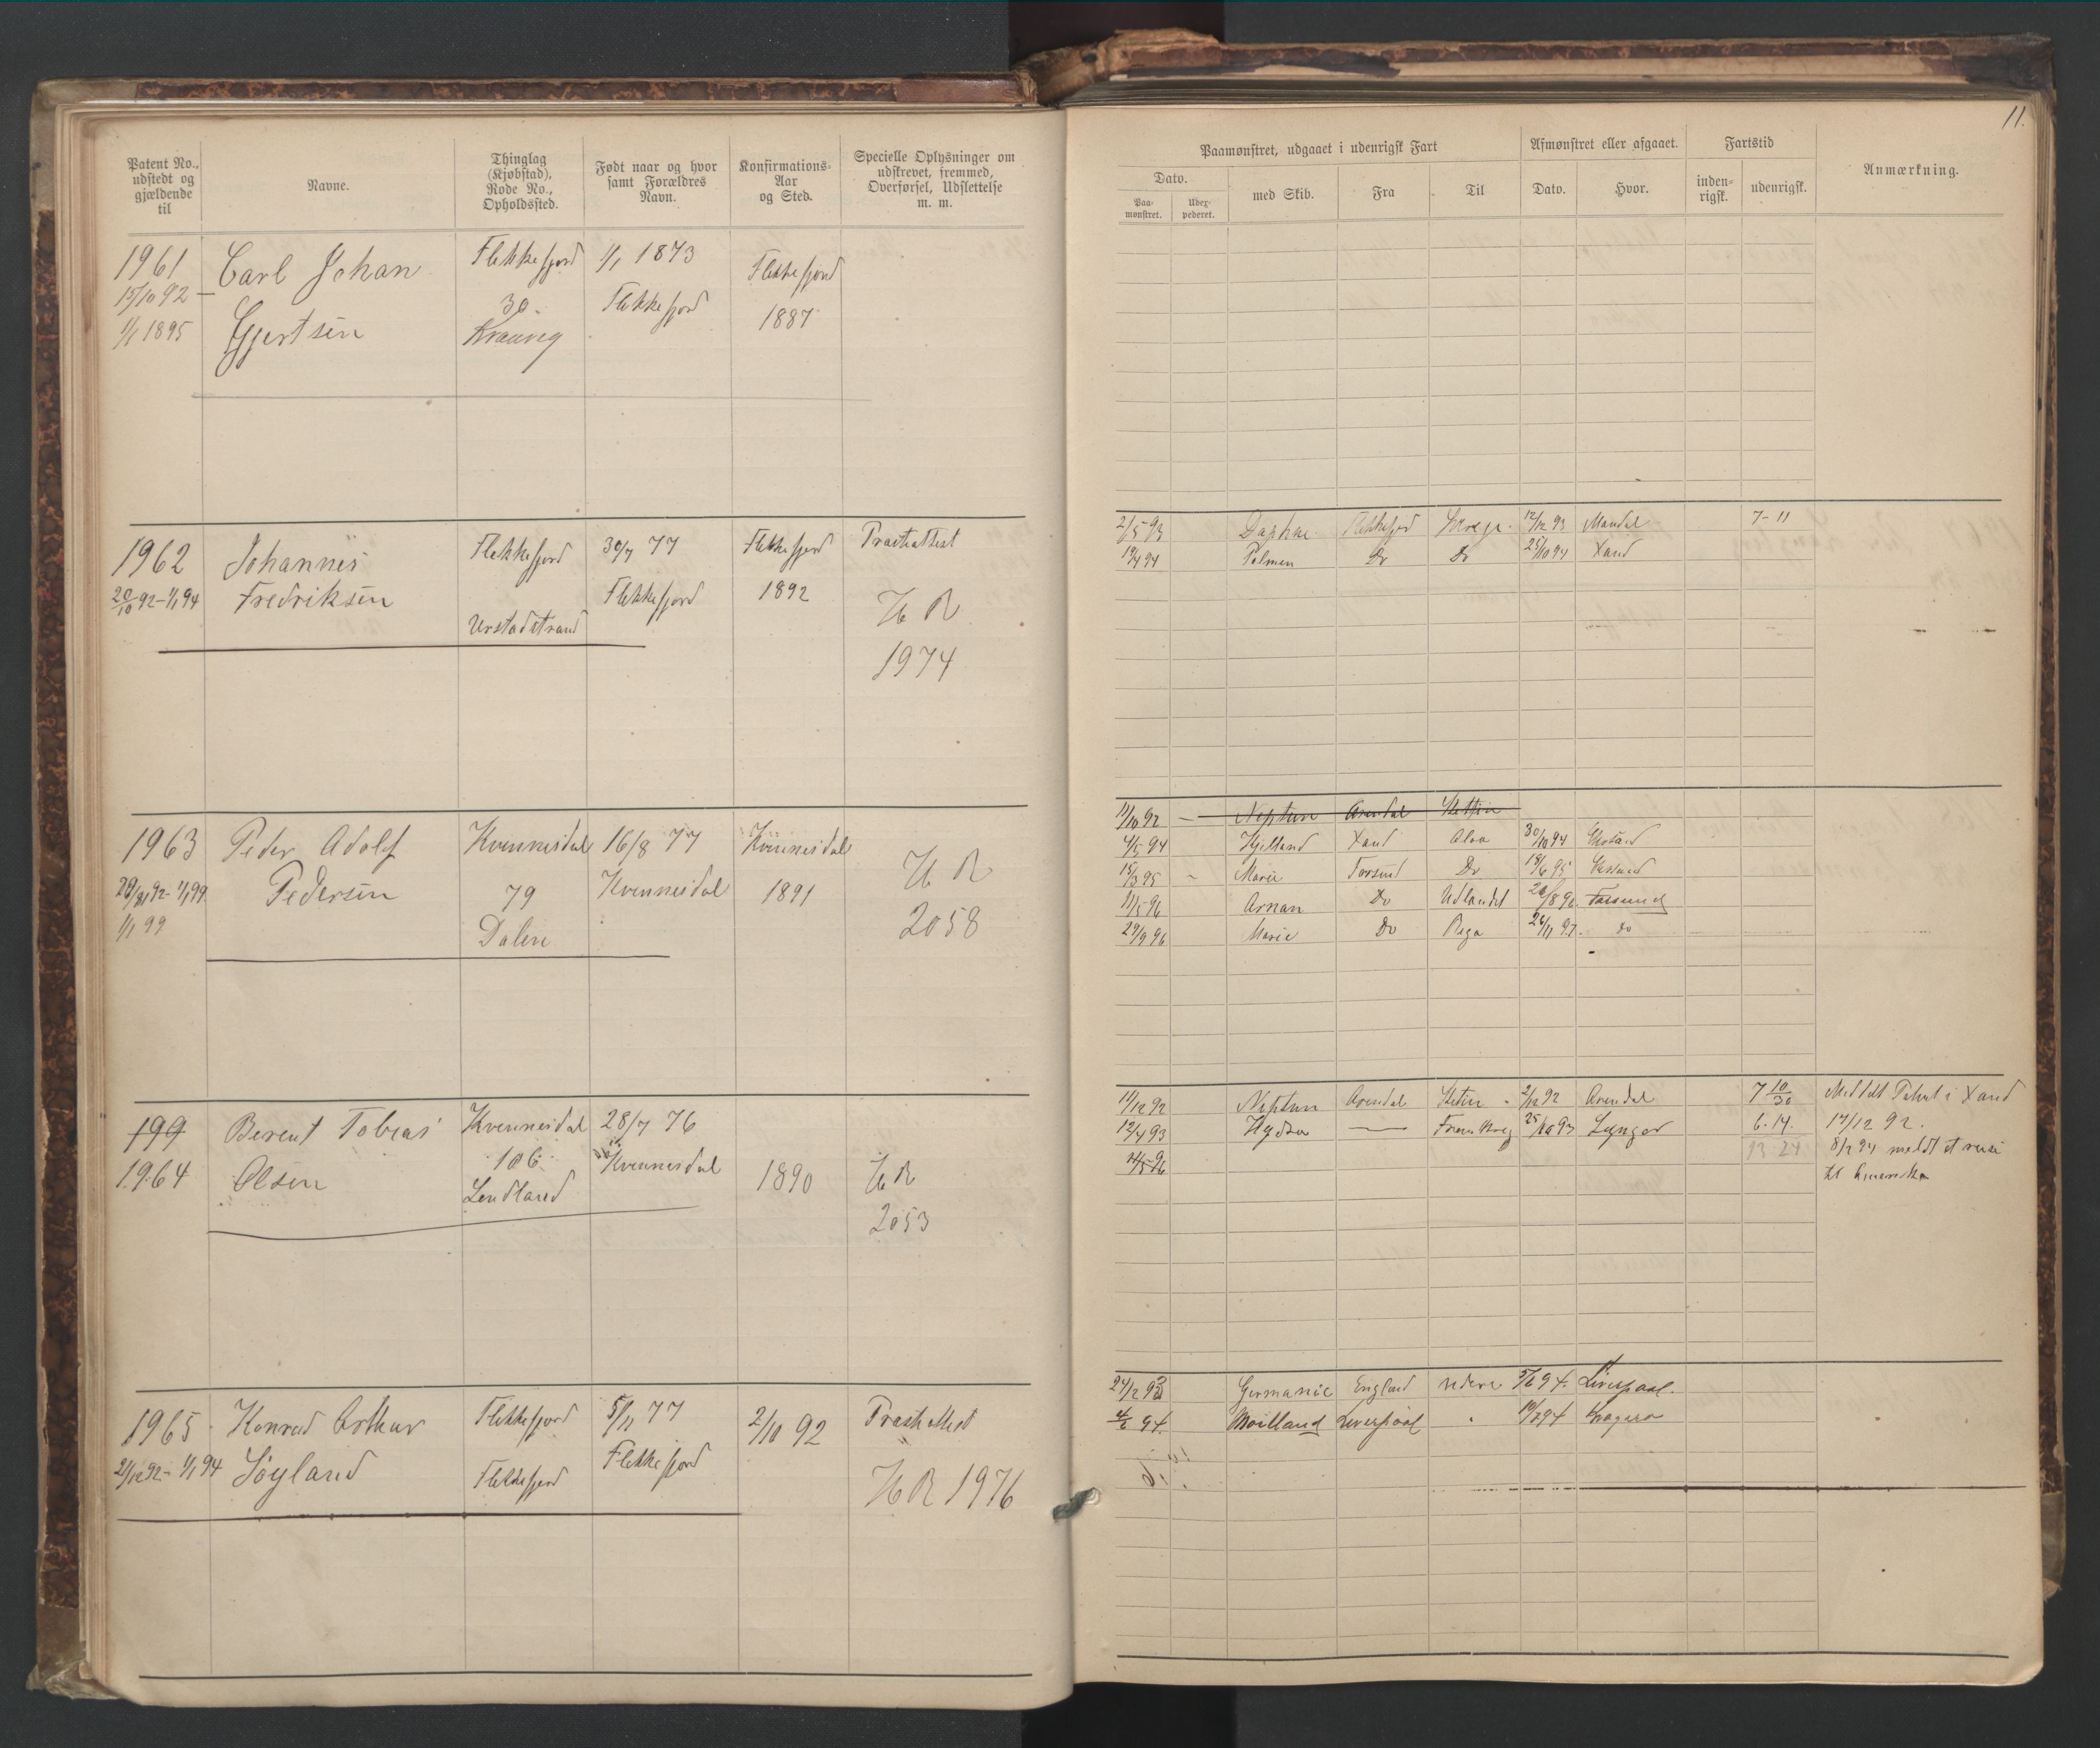 Patent No., udstedt og gjældende til
Navne.
Thinglag (Kjøbstad), Rode No., Opholdssted.
Født naar og hvor samt Forældres Navn.
Konfirmations-Aar og Sted.
Specielle Oplysninger om udskrevet, fremmed, Overførsel, Udslettelse m. m.
1961
15/10 92 –
1/1 1895
Carl Johan
Gjertsen
Flekkefjord
30.
1/1 1873
Flekkefjord
Flekkefjord
1887
1962
20/10 92 – 1/1 94
Johannes
Fredriksen
Flekkefjord
Urstadstrand
30/7 77
Flekkefjord
Flekkefjord
1892
Præstattest
H R
1974
1963
1/1 99
Peder Adolf
Pedersen
Kvinnesdal
79
Dalen
16/8 77
Kvinnesdal
Kvinnesdal
1891
H R
2058
199
1964
Berent Tobias
Olsen
Kvinnesdal
106
Lendland
28/7 76
Kvinnesdal
1890
H R
2053
1965
21/12 92 – 1/1 94
Konrad Arthur
Søyland
Flekkefjord
Flekkefjord
5/11 77
Flekkefjord
2/10 92
Præstattest
H R 1976
11.
Paamønstret, udgaaet i udenrigsk Fart
Afmønstret eller afgaaet.
Fartstid
Anmærkning.
Dato.
Paamønstret.
Udexpederet.
med Skib.
Fra
Til
Dato.
Hvor.
indenrigsk.
udenrigsk.
2/5 93 Daphne Flekkefjord 12/12 93 Mandal 7-11
19/4 94 Palmen Do Do 25/10 94 Xand
11/10 92 – Neptun Arendal Stettin
4/5 94 Hjelland Xand Aloa 30/10 94
15/3 95 Marie Farsund Do 18/6 95
11/5 96 Arnan Do Udlandet 20/8 96 Farsund
29/9 96 Marie Do Riga 26/11 97. do
11/12 92 Neptun Arendal Stettin 2/12 92 Arendal 7 10/30 Meddelt Patent i Xand
12/4 93 Hydra — 25/10 93 Lyngør 6.14. 17/12 92.
13 24 8/2 94 meldt at reise
til Amerika
24/12 93 Germanic England videre 5/6 94. Liverpool.
94 Moilland Liverpool 94 Kragerø